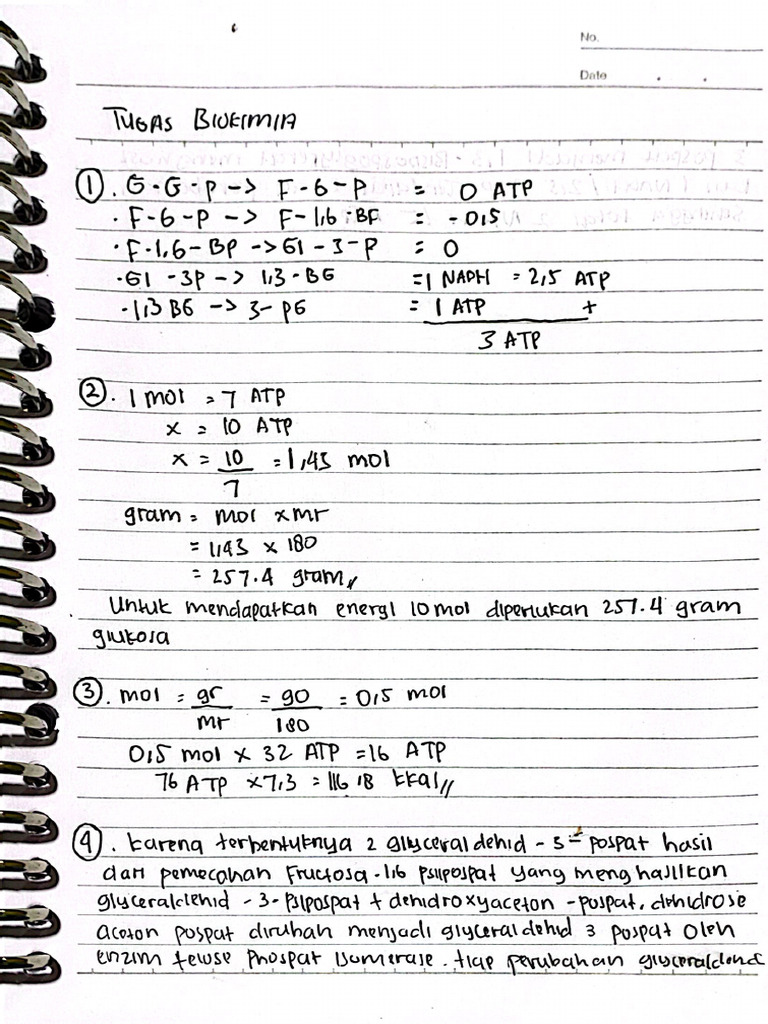 No.
Date
TUGAS BIOKIMIA
①. G-G-P -> F-6-P = 0 ATP
· F-6-P -> F-1,6-BF = -0,5
· F-1,6-BP -> Gl-3-P = 0
· Gl -3P -> 1,3-BG = 1 NADH = 2,5 ATP
· 1,3 BG -> 3-PG = 1 ATP +
3 ATP
②. 1 mol = 7 ATP
x = 10 ATP
x = 10/7 = 1,43 mol
gram = mol x mr
= 1,43 x 180
= 257.4 gram//
Untuk mendapatkan energi 10 mol diperlukan 257.4 gram
glukosa
③. mol = gr/mr = 90/180 = 0,5 mol
0,5 mol x 32 ATP = 16 ATP
76 ATP x 7,3 = 116,8 kkal//
④. karena terbentuknya 2 glyceraldehid - 3 - pospat hasil
dari pemecahan Fructosa -1,6 psipospat yang menghasilkan
glyceraldehid -3-psipospat + dehidroxyaceton -pospat. dehidrose
aceton pospat dirubah menjadi glyceraldehid 3 pospat oleh
enzim tewse phospat isomerase. tiap perubahan glyceraldehid